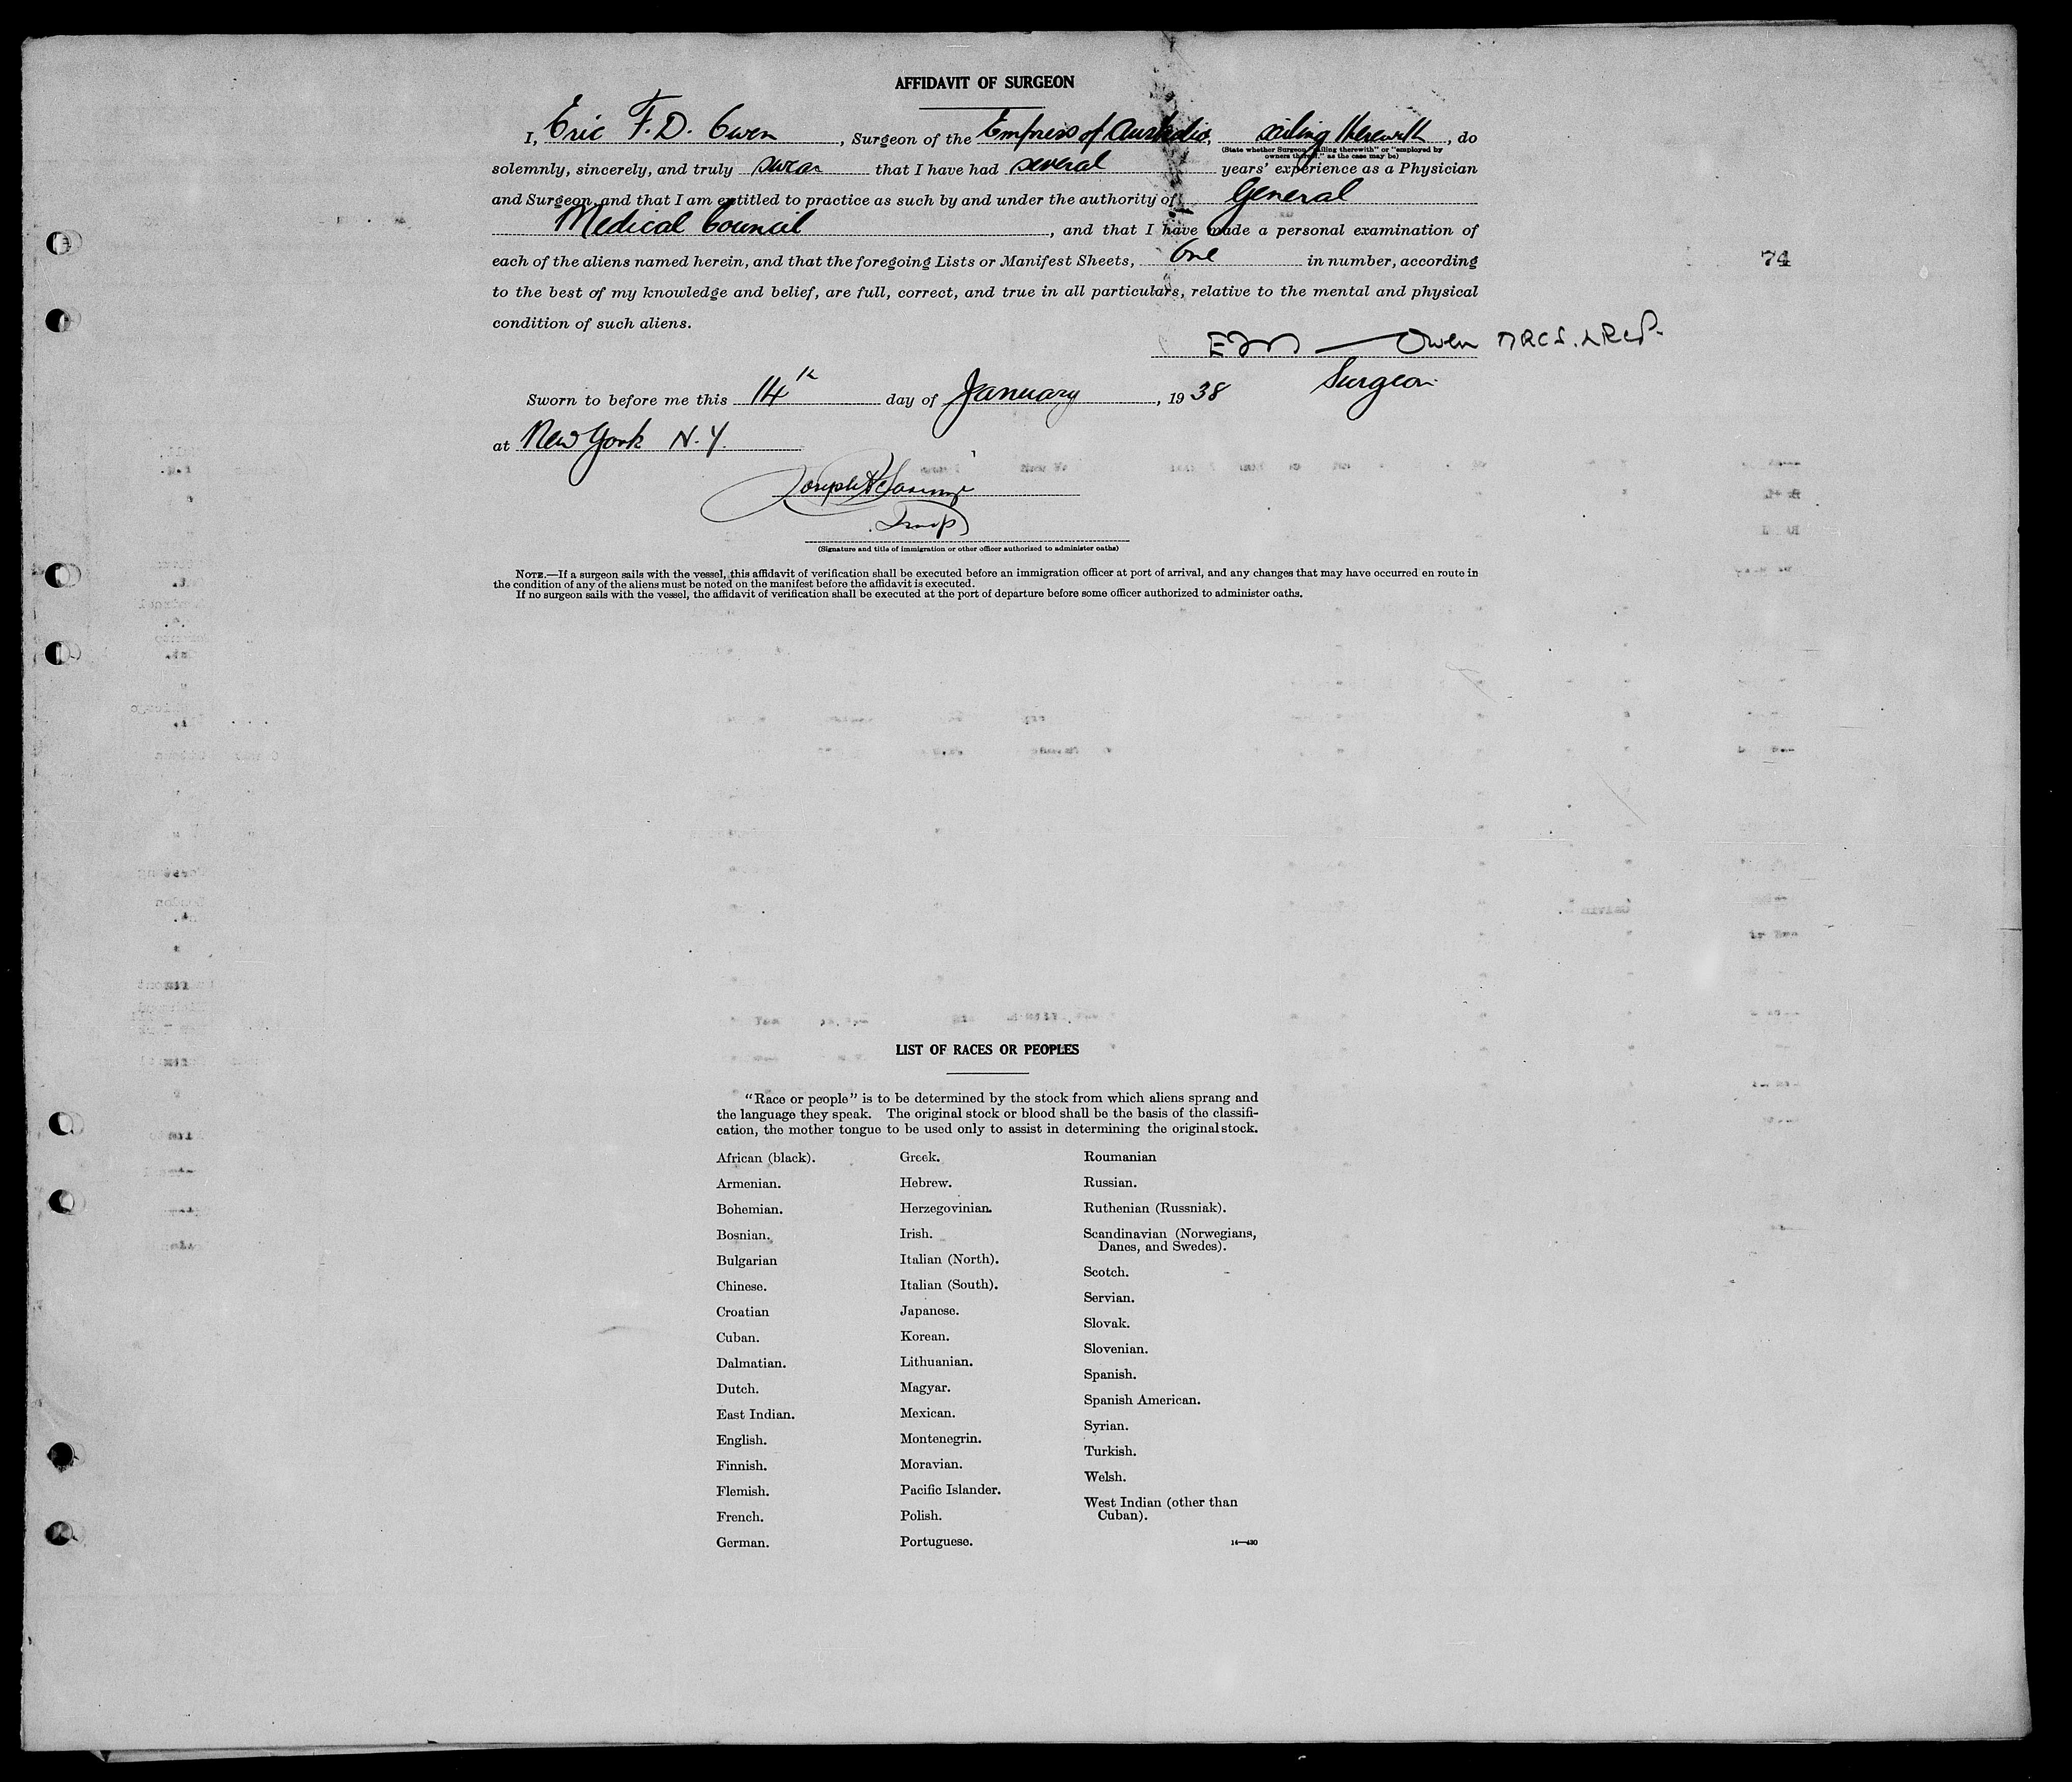 AFFIDAVIT OF SURGEON
I, Eric F. D. Owen, Surgeon of the Empress of Australia, sailing therewith, do
(State whether Surgeon "sailing therewith" or "employed by
owners thereof," as the case may be)
solemnly, sincerely, and truly swear that I have had several years' experience as a Physician
and Surgeon, and that I am entitled to practice as such by and under the authority of General
Medical Council, and that I have made a personal examination of
each of the aliens named herein, and that the foregoing Lists or Manifest Sheets, One in number, according
74
to the best of my knowledge and belief, are full, correct, and true in all particulars, relative to the mental and physical
condition of such aliens.
Owen MRCS. LRCP.
Surgeon
Sworn to before me this 14th day of January, 1938
at New York N.Y.
Joseph
(Signature and title of immigration or other officer authorized to administer oaths)
NOTE.—If a surgeon sails with the vessel, this affidavit of verification shall be executed before an immigration officer at port of arrival, and any changes that may have occurred en route in
the condition of any of the aliens must be noted on the manifest before the affidavit is executed.
If no surgeon sails with the vessel, the affidavit of verification shall be executed at the port of departure before some officer authorized to administer oaths.
LIST OF RACES OR PEOPLES
"Race or people" is to be determined by the stock from which aliens sprang and
the language they speak. The original stock or blood shall be the basis of the classifi-
cation, the mother tongue to be used only to assist in determining the original stock.
African (black).
Armenian.
Bohemian.
Bosnian.
Bulgarian
Chinese.
Croatian
Cuban.
Dalmatian.
Dutch.
East Indian.
English.
Finnish.
Flemish.
French.
German.
Greek.
Hebrew.
Herzegovinian.
Irish.
Italian (North).
Italian (South).
Japanese.
Korean.
Lithuanian.
Magyar.
Mexican.
Montenegrin.
Moravian.
Pacific Islander.
Polish.
Portuguese.
Roumanian
Russian.
Ruthenian (Russniak).
Scandinavian (Norwegians,
Danes, and Swedes).
Scotch.
Servian.
Slovak.
Slovenian.
Spanish.
Spanish American.
Syrian.
Turkish.
Welsh.
West Indian (other than
Cuban).
14—430